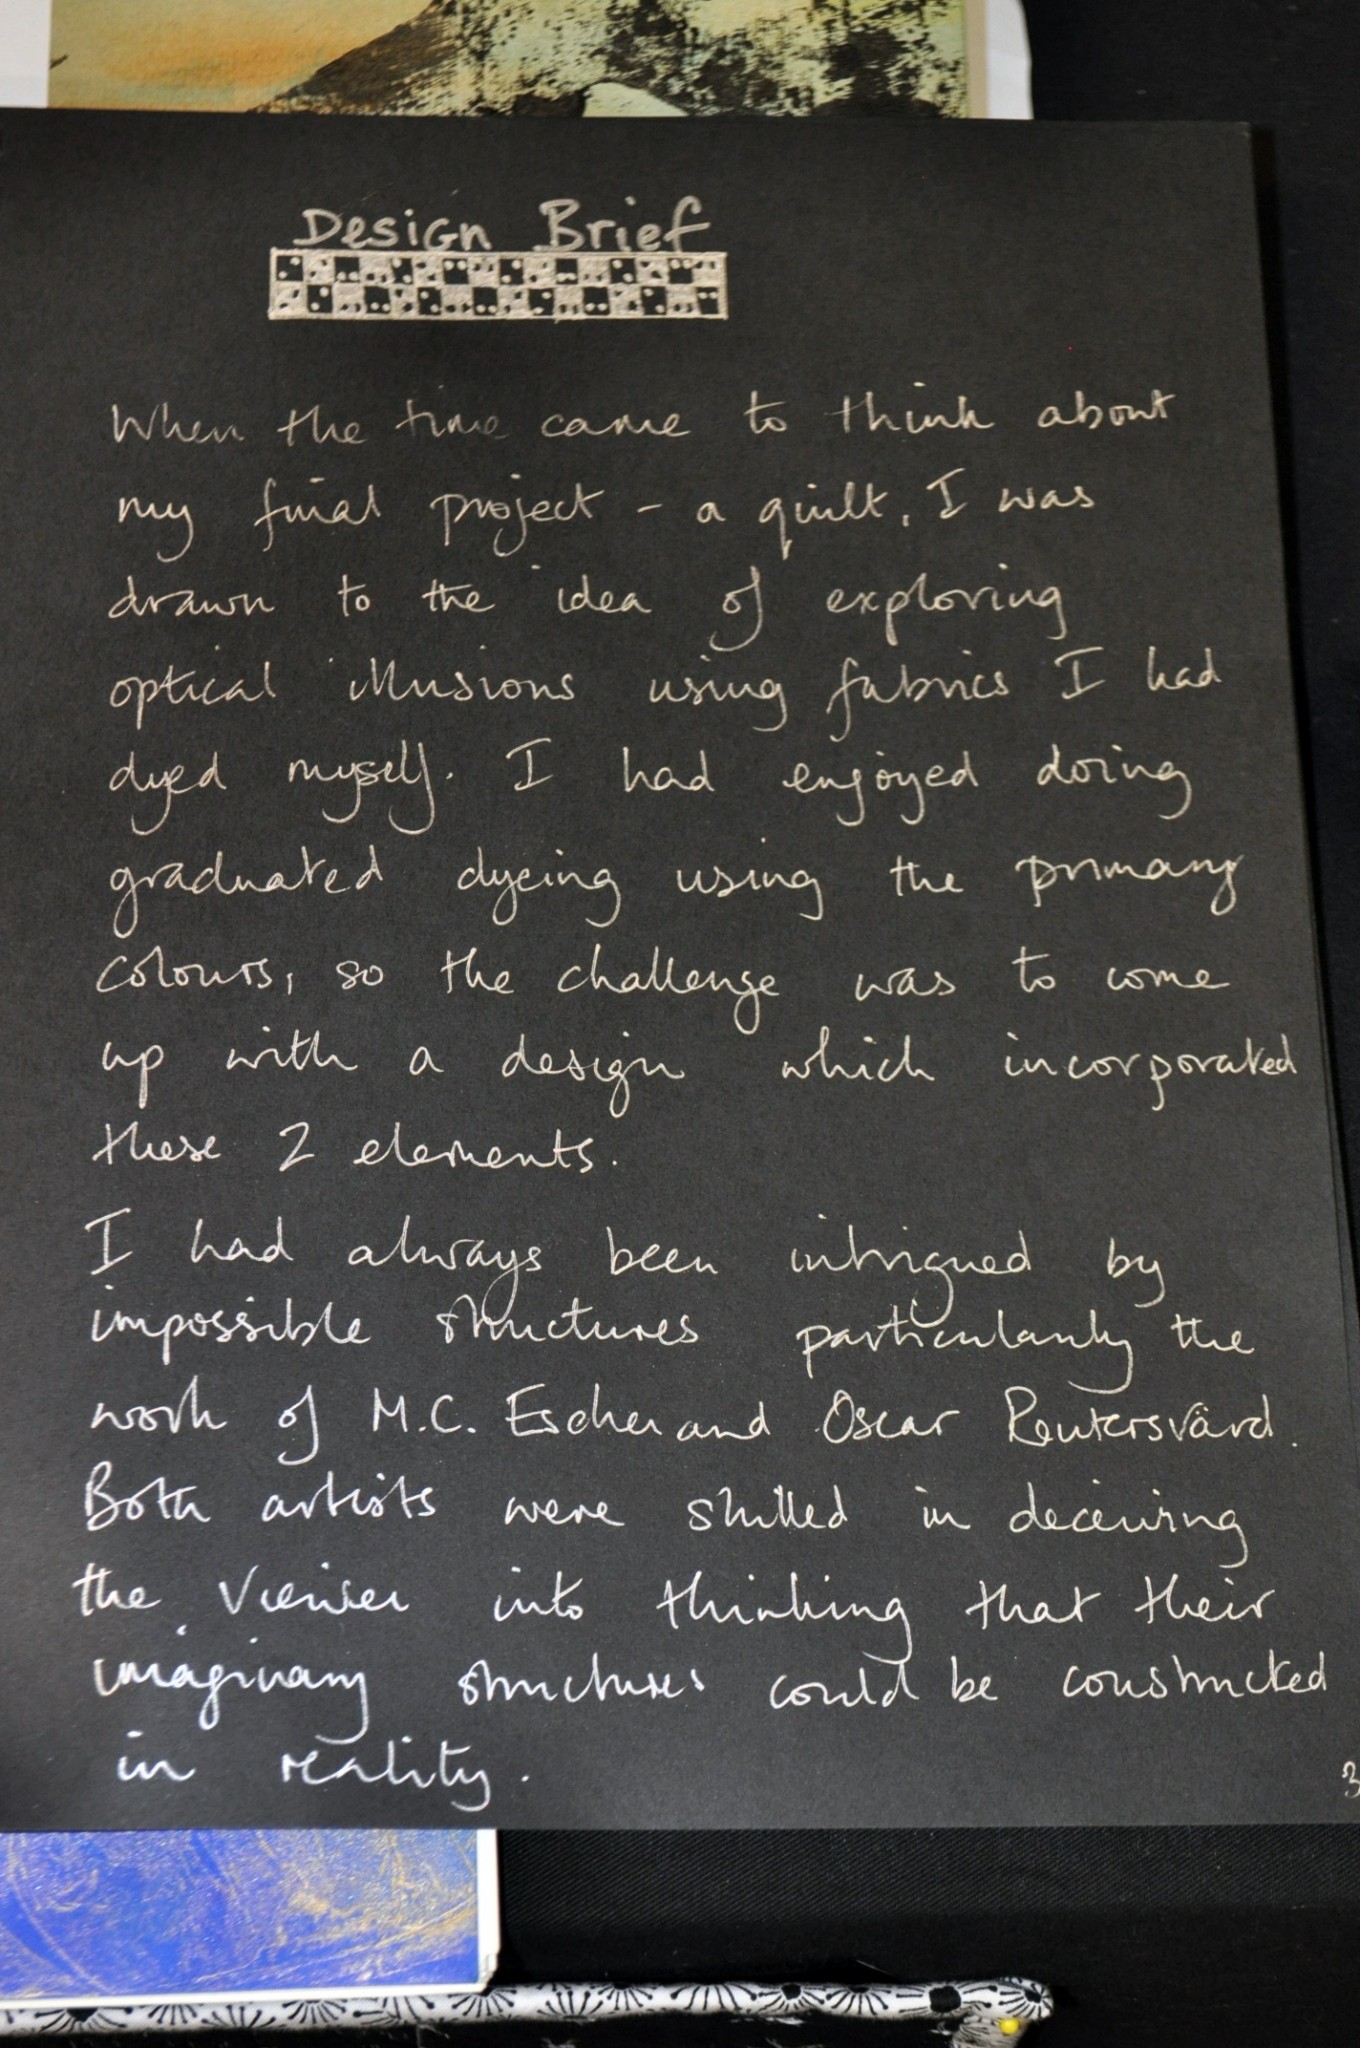 Design Brief
When the time came to think about
my final project - a quilt, I was
drawn to the idea of exploring
optical illusions using fabrics I had
dyed myself. I had enjoyed doing
graduated dyeing using the primary
colours, so the challenge was to come
up with a design which incorporated
these 2 elements.
I had always been intrigued by
impossible structures particularly the
work of M.C. Escher and Oscar Reutersvärd.
Both artists were skilled in deceiving
the viewer into thinking that their
imaginary structures could be constructed
in reality.
3